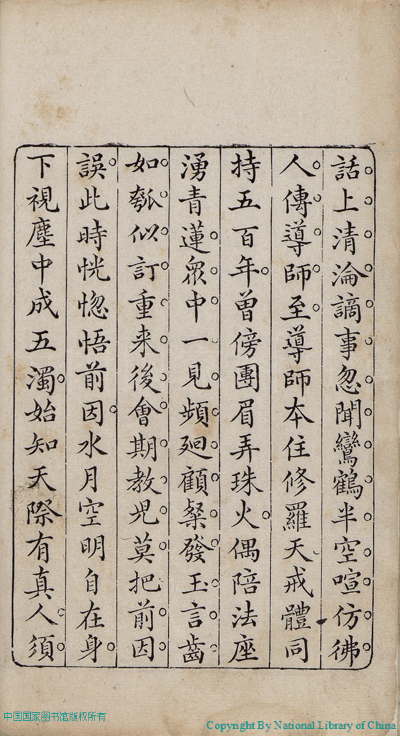 話上清淪謫事忽聞鸞鶴半空喧仿彿
人傳導師至導師本住修羅天戒體同
持五百年曾傍團眉弄珠火偶陪法座
湧青蓮衆中一見頻廻顧粲發玉言齒
如瓠似訂重来後會期教児莫把前因
誤此時恍惚悟前因水月空明自在身
下視塵中成五濁始知天際有真人須
中国国家图书馆版权所有
Copyright By National Library of China